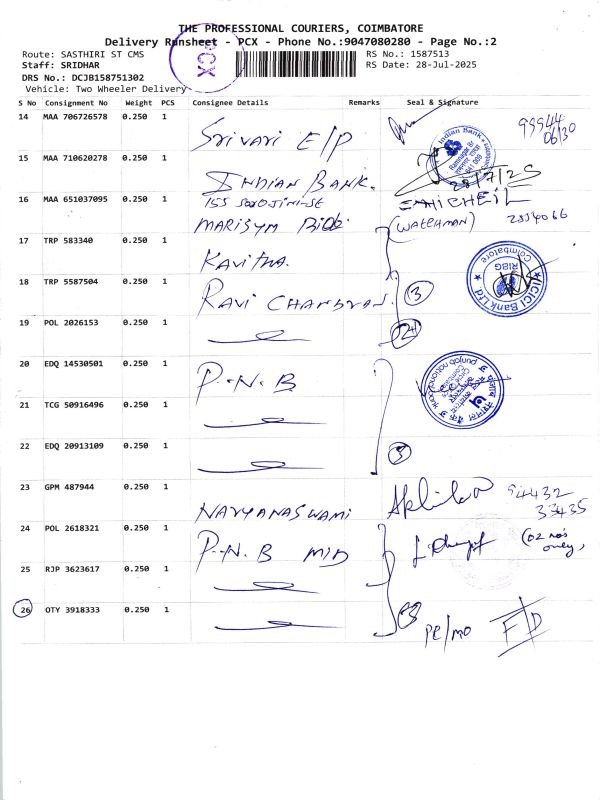 THE PROFESSIONAL COURIERS, COIMBATORE
Delivery Runsheet - PCX - Phone No.:9047080280 - Page No.:2
Route: SASTHIRI ST CMS
RS No.: 1587513
Staff: SRIDHAR
RS Date: 28-Jul-2025
DRS No.: DCJB158751302
Vehicle: Two Wheeler Delivery
PCX
S No Consignment No Weight PCS Consignee Details Remarks Seal & Signature
14 MAA 706726578 0.250 1 Srivari E/P 99944 06130
15 MAA 710620278 0.250 1 INDIAN BANK. Indian Bank 28/7/25
16 MAA 651037095 0.250 1 155 MARISYM (WATCHMAN)
17 TRP 583340 0.250 1 Kavitha. ICICI Bank Ltd RIBG Coimbatore
18 TRP 5587504 0.250 1 RAVI CHANDRAN. 3
19 POL 2026153 0.250 1
20 EDQ 14530501 0.250 1 P.N.B punjab national
21 TCG 50916496 0.250 1
22 EDQ 20913109 0.250 1 3
23 GPM 487944 0.250 1 NARYANASWAMI 94432 33435
24 POL 2618321 0.250 1 P.N.B MID (02 no's only,
25 RJP 3623617 0.250 1
26 OTY 3918333 0.250 1